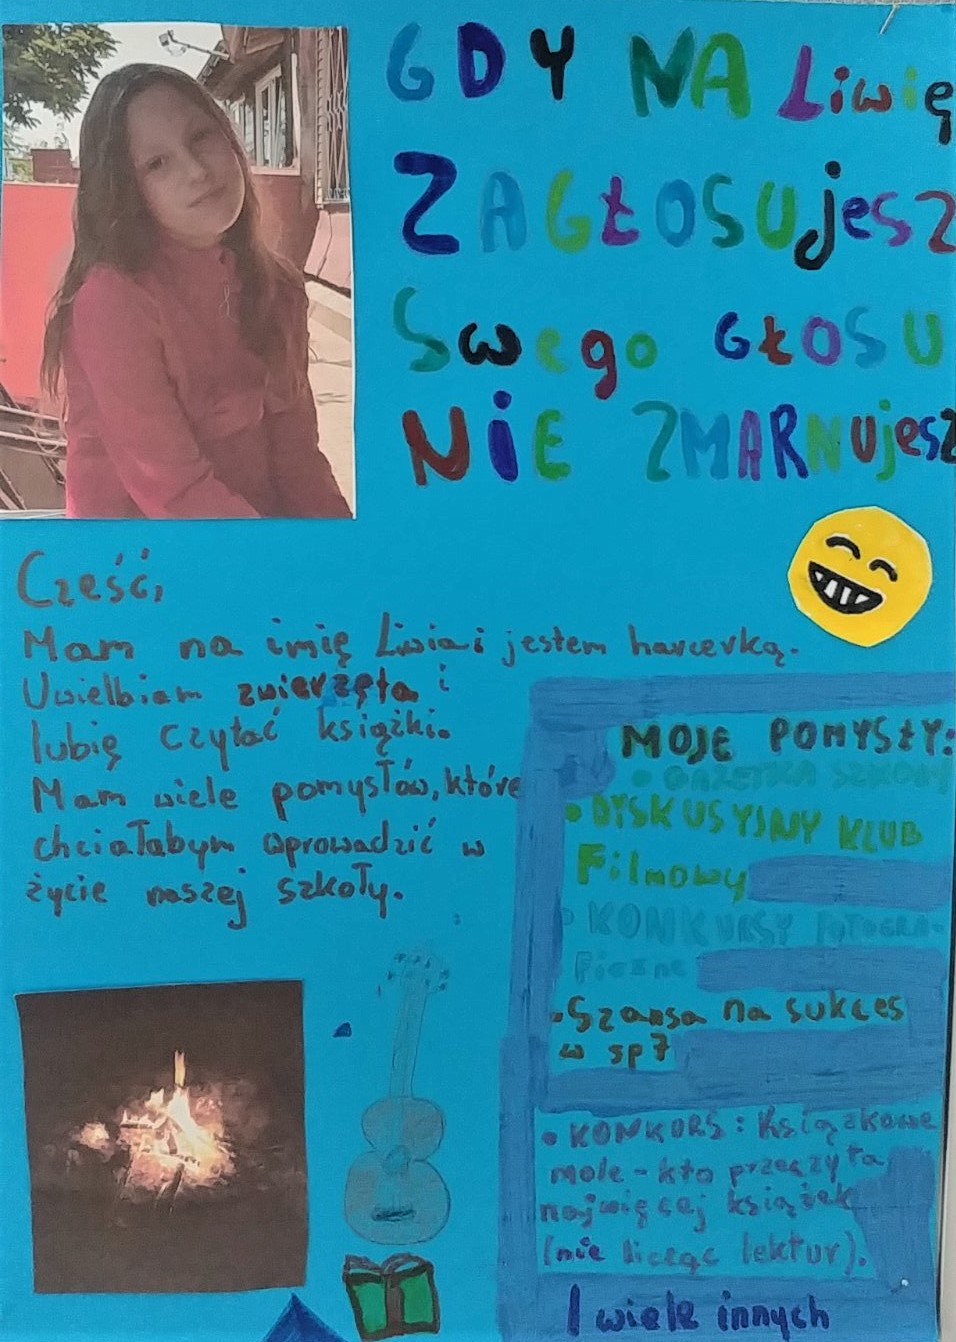 GDY NA Liwię
ZAGŁOSUjesz
Swego GŁOSU
NIE ZMARNUjesz
Cześć,
Mam na imię Liwia i jestem harcerką.
Uwielbiam zwierzęta i
lubię czytać książki.
Mam wiele pomysłów, które
chciałabym wprowadzić w
życie naszej szkoły.
MOJE POMYSŁY:
• GAZETKA
• DYSKUSYJNY KLUB
Filmowy
• KONKURSY FOTOGRA-
Ficzne
• Szansa na sukces
w sp7
• KONKURS: Książkowe
mole - kto przeczyta
najwięcej książek
(nie licząc lektur).
I wiele innych